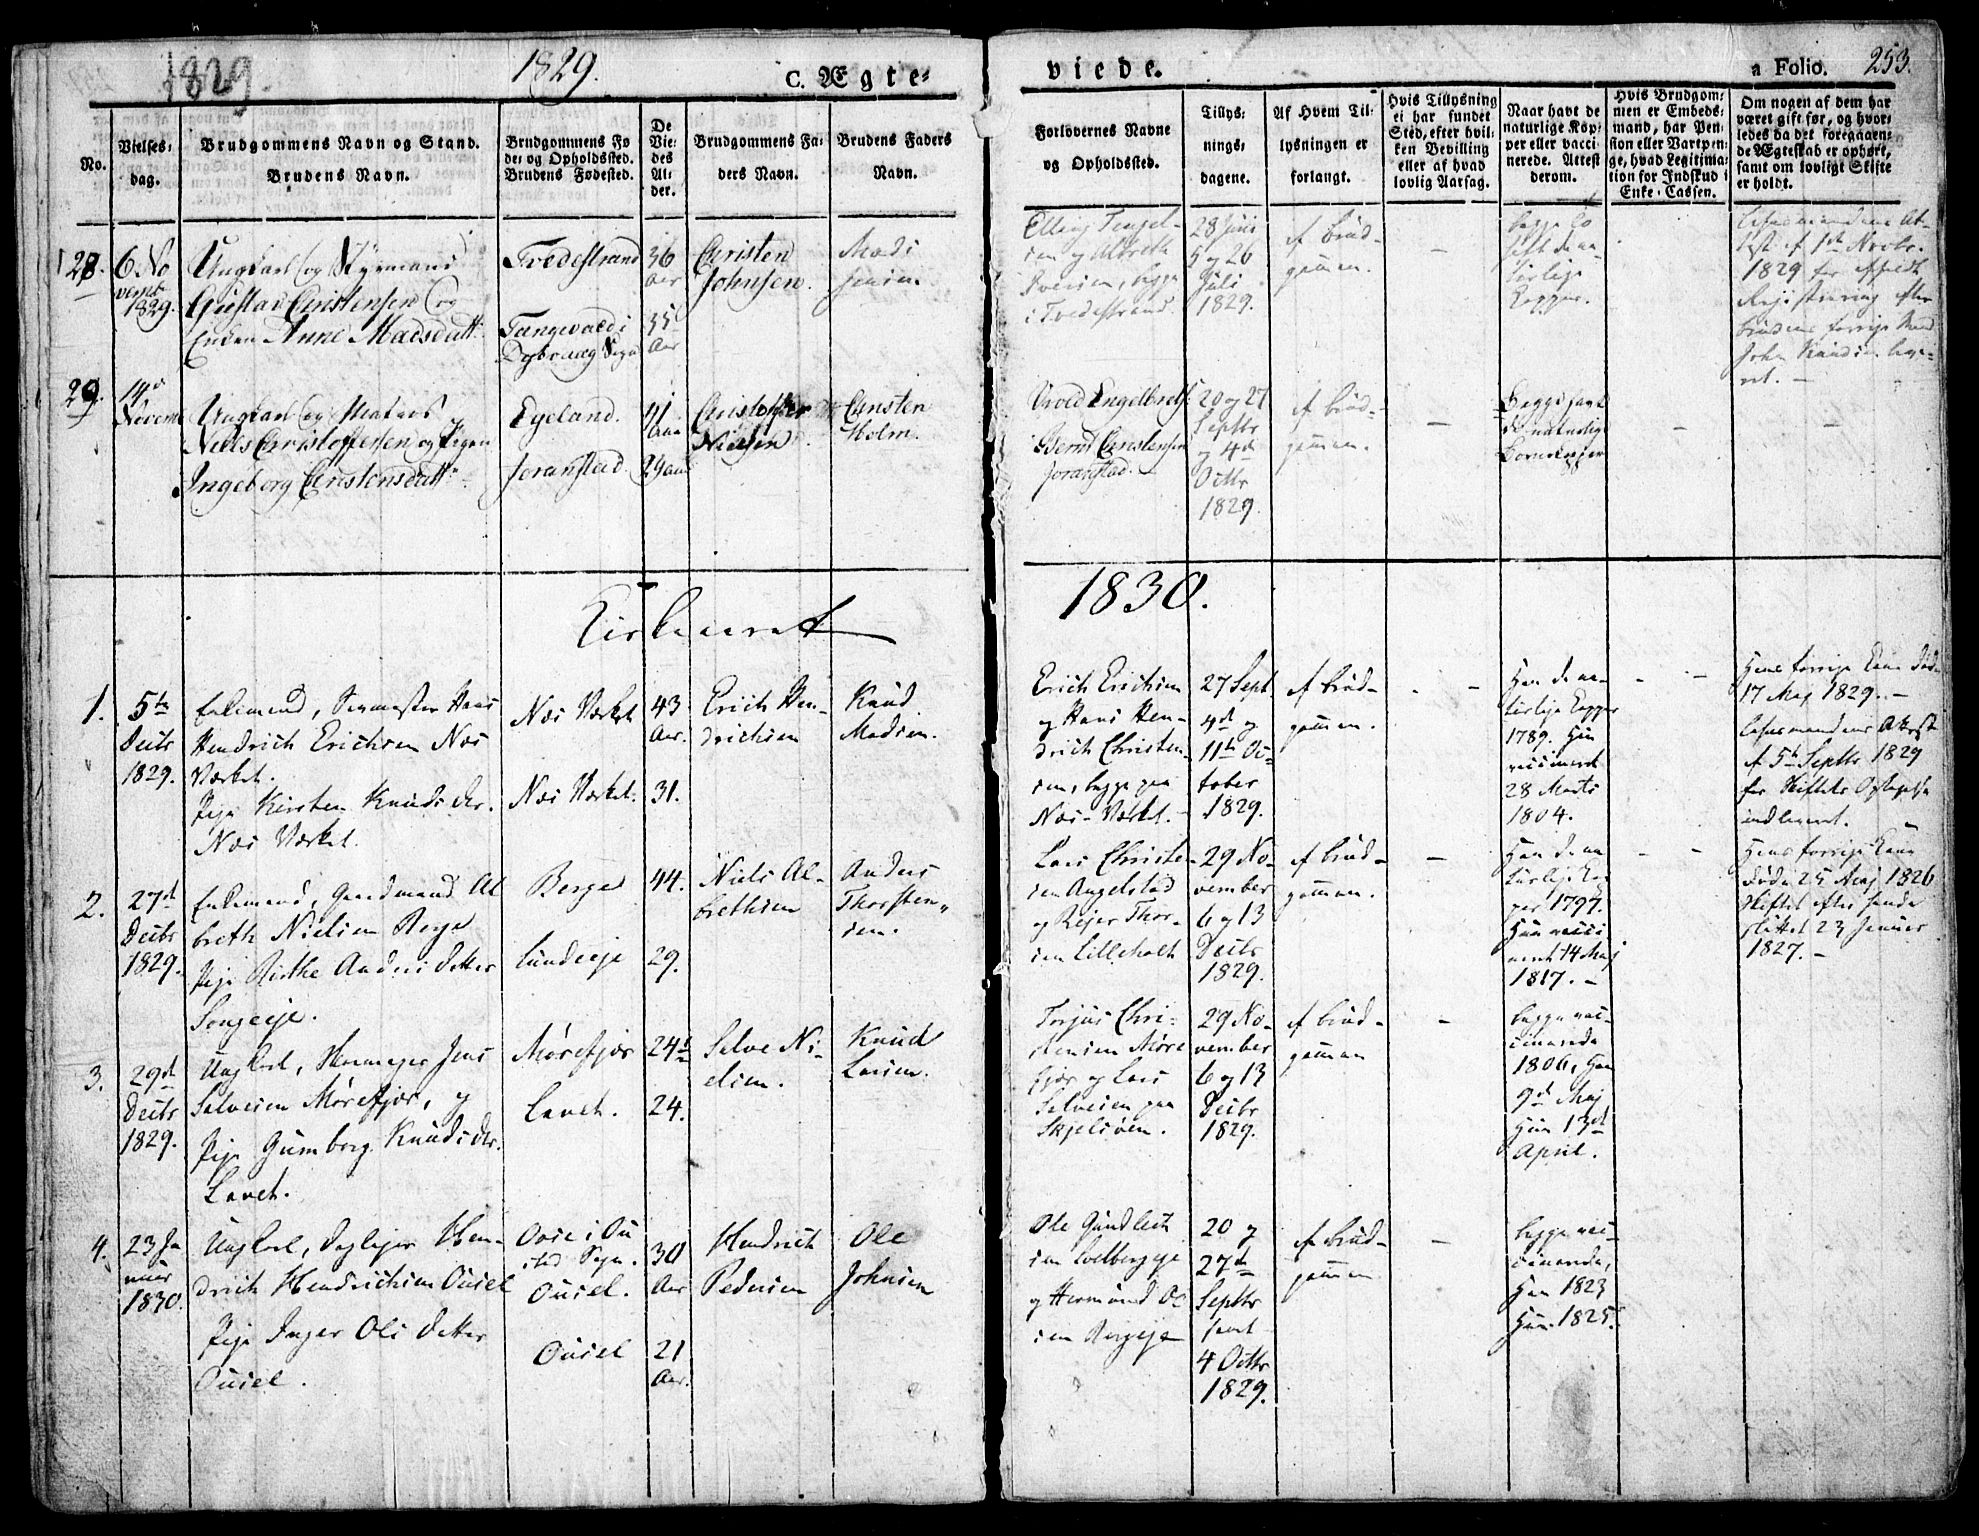 1829
1829.
C. Ægte=
viede.
a Folio. 253.
No.
Vielses=
dag.
Brudgommens Navn og Stand.
Brudens Navn.
Brudgommens Fø
de= og Opholdssted.
Brudens Fødested.
De
Vie=
des
Al=
der.
Brudgommens Fa=
ders Navn.
Brudens Faders
Navn.
Forlovernes Navne
og Opholdssted.
Tillys=
nings=
dagene.
Af Hvem Til=
lysningen er
forlangt.
Hvis Tillysning
ei har fundet
Sted, efter hvil=
ken Bevilling
eller af hvad
lovlig Aarsag.
Naar havt de
naturlige Kop=
per eller vacci
nerede. Attest
derom.
Hvis Brudgom=
men er Embeds=
mand, har Pen=
sion eller Vartpen=
ge, hvad Legitima=
tion for Indskud i
Enke=Cassen.
Om nogen af dem har
været gift før, og hvor=
ledes da det foregaaen=
de Ægteskab er ophørt,
samt om lovligt Skifte
er holdt.
28.
6 No
vembr
1829.
Ungkarl og Styrmand
Gustav Christensen og
Enken Anne Madsdatt.
Tvedestrand
Tangevald i
Dybvaag Sogn
36
aar
35
Aar
Christen
Johnsen.
Mads
Jensen
Elling Tengel-
sen og Albreth
Iversen, begge
i Tvedestrand.
28 Juni
5 og 26
Juli
1829.
af Brud-
gommen.
-
begge
havt de na-
turlige
Kopper.
Lehnsmandens At-
test af 1ste Novbr.
1829 for afholdt
Registrering efter
Brudens forrige Mand
John Knudsen
29.
14de
Novem
Ungkarl og Matros
Niels Christoffersen og Pigen
Ingeborg Christensdatt.
Egeland.
Joranstad.
41
aar
29 aar
Christoffer
Nielsen
Christen
Holm.
Wrold Engelbretsen
Bernt Christensen
Joranstad.
20 og 27
Septbr
og 4de
Octbr
1829.
af Brud-
gommen.
-
Begge havt
de naturlige
Børnekopper
-
-
Kirkeaaret
1830.
1.
5te
Decbr
1829.
Enkemand, Hans
Hendrich Erichsen Næs
Værket.
Pige Kirsten Knudsdtr.
Næs Værket.
Næs Værket
Næs Værket.
43
Aar.
31.
Erich Hen-
drichsen
Knud
Madsen.
Erich Erichsen
og Hans Hen-
drich Christen-
sen, begge paa
Næs-Værket.
27 Sept
4de og
11te Oc-
tober
1829.
af Brud-
gommen.
-
Han de na-
turlige Kopper
1789. Hun
vaccineret
28 Marts
1804.
-
Hans forrige Kone døde
17 Maj 1829.-
Lehnsmandens Attest
af 5te Septbr 1829
for Skiftets
indleveret.
2.
27de
Decbr
1829.
Enkemand, Gaardmand Al
breth Nielsen Berge
Pige Birthe Andersdatter
Songeeje.
Berge
Lundeeje
44.
29.
Niels Al-
brethsen
Anders
Thorsten-
sen.
Lars Christe-
sen Angelstad
og Rejer Thor-
sen Lilleholt
29 No-
vember
6 og 13
Decbr
1829.
af Brud-
gommen.
-
Han de na
turlige Kop
per 1797.
Hun vacci
neret 14 Maj
1817.-
-
Hans forrige Kone
døde 25 Maj 1826
Skiftet efter hende
sluttet 23 Januar
1827.-
3.
29de
Decbr
1829.
Ungkarl, Jens
Salvesen Mørefjær, og
Pige Gumborg Knudsdtr.
Lavet.
Mørefjær
Lavet.
24½
24.
Salve Ni-
elsen.
Knud
Larsen.
Torjus Chri-
stensen Møre
fjær og Lars
Salvesen paa
Skjelsøen.
29 No-
vember
6 og 13
Decbr
1829.
af Brud-
gommen
-
begge vac-
cinerede
1806, Han
9de Maj
Hun 13de
April.
4.
23 Ja
nuar
1830.
Ungkarl, Hen-
drich Hendrichsen Ousel
Pige Inger Olsdatter
Ousel.
Oust i Ou
stad Sogn.
Ousel.
Ousel
30
Aar
21
Aar.
Hendrich
Pedersen
Ole
Johnsen
Ole Gundlech
sen
og Hermund Ol
sen
20 og
27de
Septbr
samt
4 Octbr
1829.
af Brud-
gommen
-
begge vac-
cinerede,
Han 1823
Hun 1825.